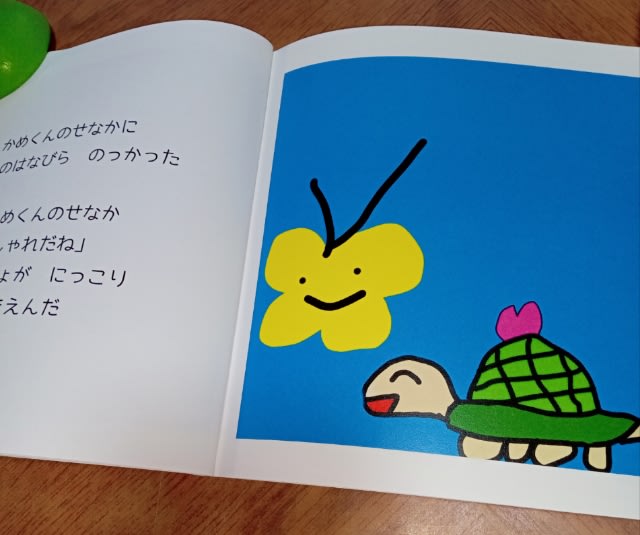 かめくんのせなかに
のはなびら　のっかった
めくんのせなか
しゃれだね」
ょが　にっこり
えんだ